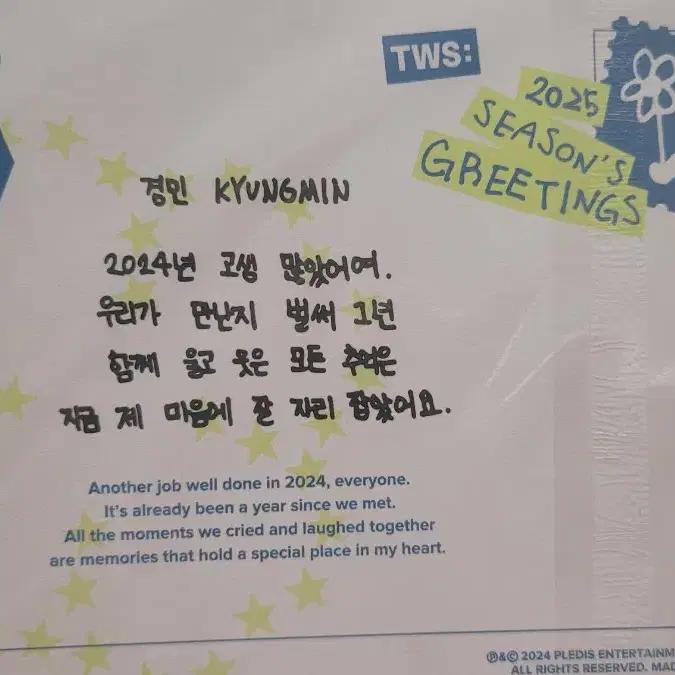 TWS:
2025
SEASON'S
GREETINGS
경민 KYUNGMIN
2024년 고생 많았어여.
우리가 만난지 벌써 1년
함께 울고 웃은 모든 추억은
지금 제 마음에 잘 자리 잡았어요.
Another job well done in 2024, everyone.
It's already been a year since we met.
All the moments we cried and laughed together
are memories that hold a special place in my heart.
℗&© 2024 PLEDIS ENTERTAINM
ALL RIGHTS RESERVED. MAD